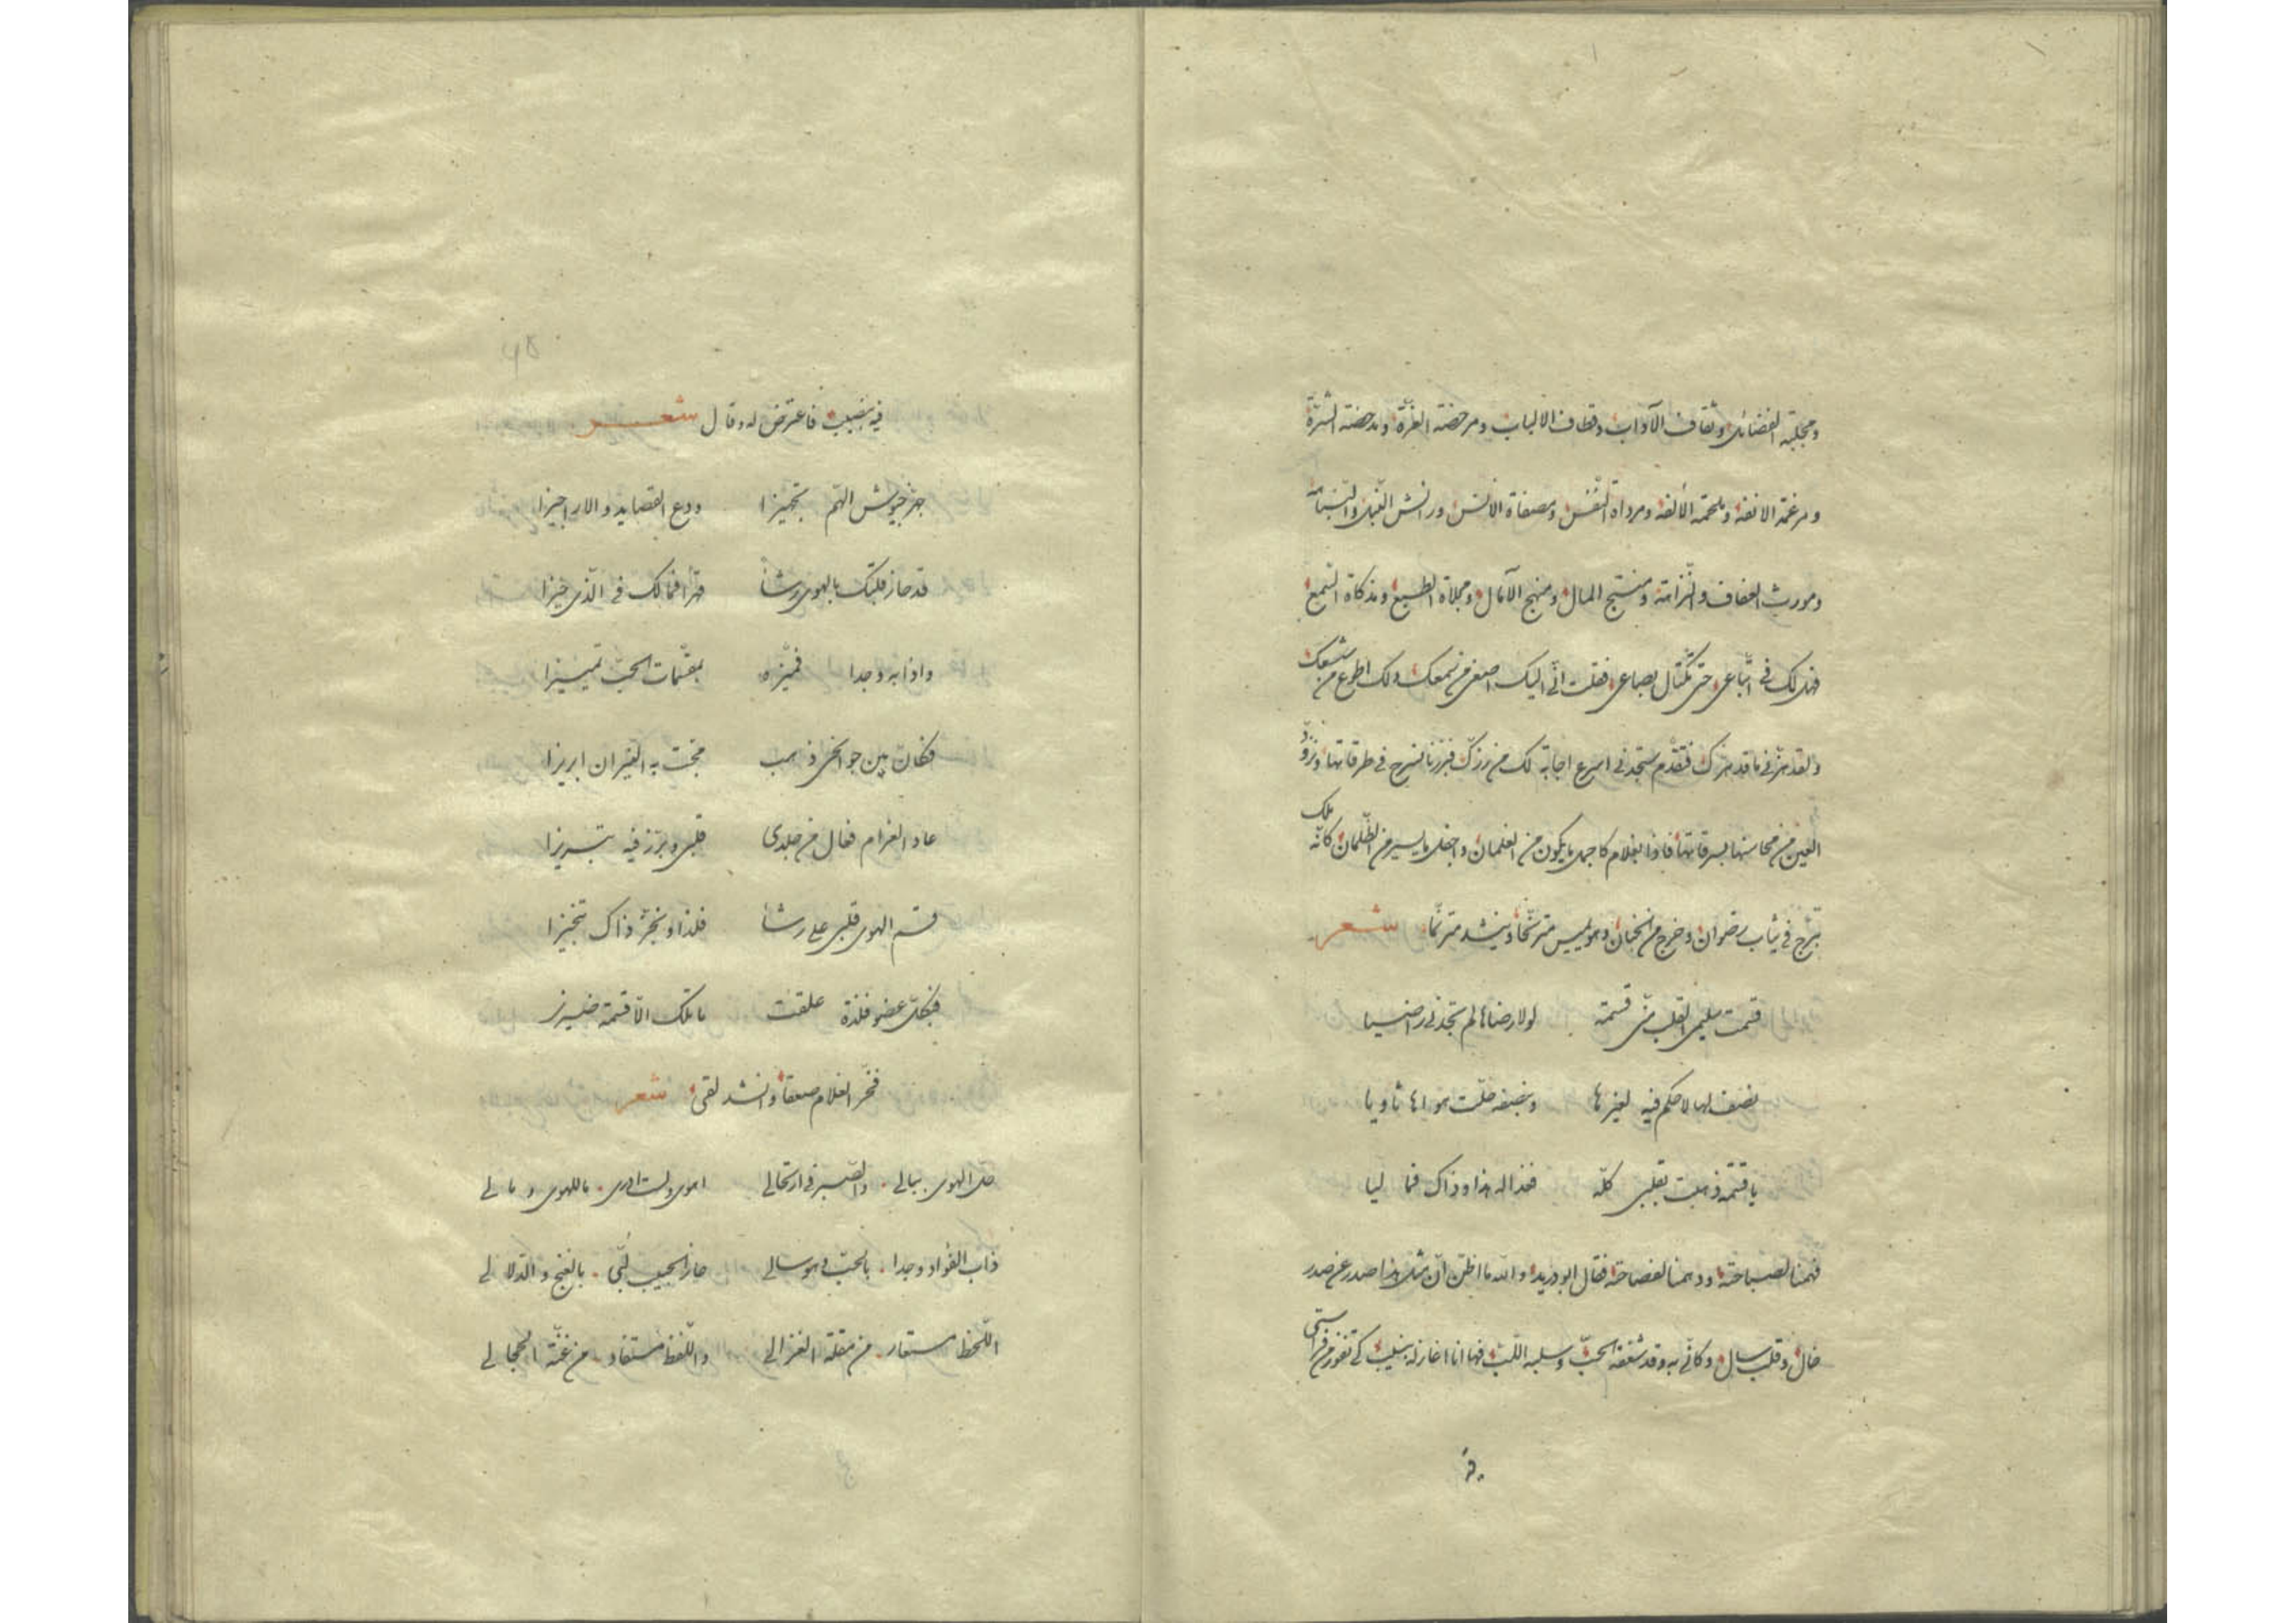 ومجلبة الفضائل وثقاف الآداب وقطاف الالباب ومرحضة الغرّة ومدحضة الشرّة
ومرغمة الانفة وملحمة الألفة ومرداة النّفس ومصفاة الانس
ومورث العفاف والنّزاهة ومنتج المال ومنهج الآمال ومجلاة الطبع ومذكاة السّمع
فهل لك في اتّباعى حتى تكتال بصاعى فقلت انّى اليك اصغى من سمعك ولك اطوع من شسعك
ولقد هزّنى ما قد هزّك فتقدّم ستجدنى اسرع اجابة لك من فبرزنا نسرح فى طرقاتها ونزوّد
العين من محاسنها بسرقاتها فاذا بغلام كاجمل ما يكون من الغلمان واجفل ما يسير من الظّلمان كانّه ملك
تبرّج فى ثياب رضوان وخرج من الجنان وهو يميس مترنّحا وينشد مترنّما شعر
قسمت سليمى القلب منّى قسمة لولا رضاها لم تجدنى راضيا
نصف لها لا حكم فيه لغيرها وبنصفه حلّت هواها ثاويا
يا قسمة ذهبت بقلبى كلّه فغدا له هذا وذاك فما ليا
فهمنا لصباحته ودهمنا لفصاحته فقال ابو دريد والله ما اظنّ انّ مثل هذا صدر عن صدر
خال وقلب سال وكانّى به وقد شغفه الحبّ وسلبه اللّبّ فها انا اغازله بنسيب كى تفوز من
فيه بنصيب فاعترض له وقال شعر
جهّز جيوش الهمّ تجهيزا ودع القصايد والاراجيزا
قد حاز قلبك بالهوى رشأ قهرا فما لك فى الّذى حيزا
واذا به وجدا فميّزه بمقسّمات الحبّ تمييزا
فكان بين جوانحى ذهب مخّت به النيران ابريزا
عاد الغرام فغال من جلدى قلبى وبرّز فيه تبريزا
قسم الهوى قلبى على رشأ فلذا وينجز ذاك تنجيزا
فبكلّ عضو فلذة علقت ما تلك الّا قسمة ضيزى
فخرّ الغلام صعقا وانشد لقى شعر
حلّ الهوى ببالى والصّبر فى ارتحالى اهوى ولست ادرى ما للهوى وما لى
ذاب الفؤاد وجدا بالحبّ وهو سالى حاز الحبيب لبّى بالغنج والدّلالى
اللّحظ مستعار من مقلة الغزالى واللّفظ مستفاد من غنّة الحجالى